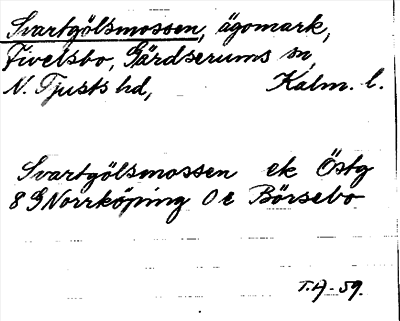 Svartgölsmossen, ägomark,
Fivelsbo, Gärdserums sn,
N. Tjusts hd, Kalm. l.
Svartgölsmossen ek Östg
8 G Norrköping 0 e Börsebo
T.A-59.